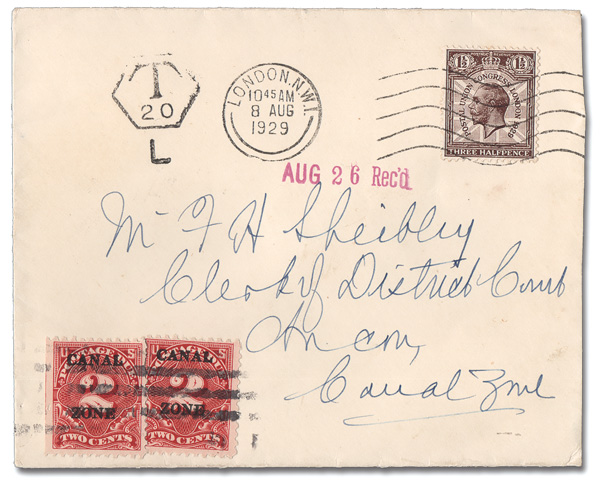 T
20
L
LONDON.N.W.1.
10 45 AM
8 AUG
1929
1½ 1½
POSTAL UNION CONGRESS LONDON 1929
THREE HALFPENCE
AUG 26 Rec'd
Mr F H Sheibley
Clerk of District Court
Ancon,
Canal Zone
CANAL CANAL
2 2
ZONE ZONE
TWO CENTS TWO CENTS